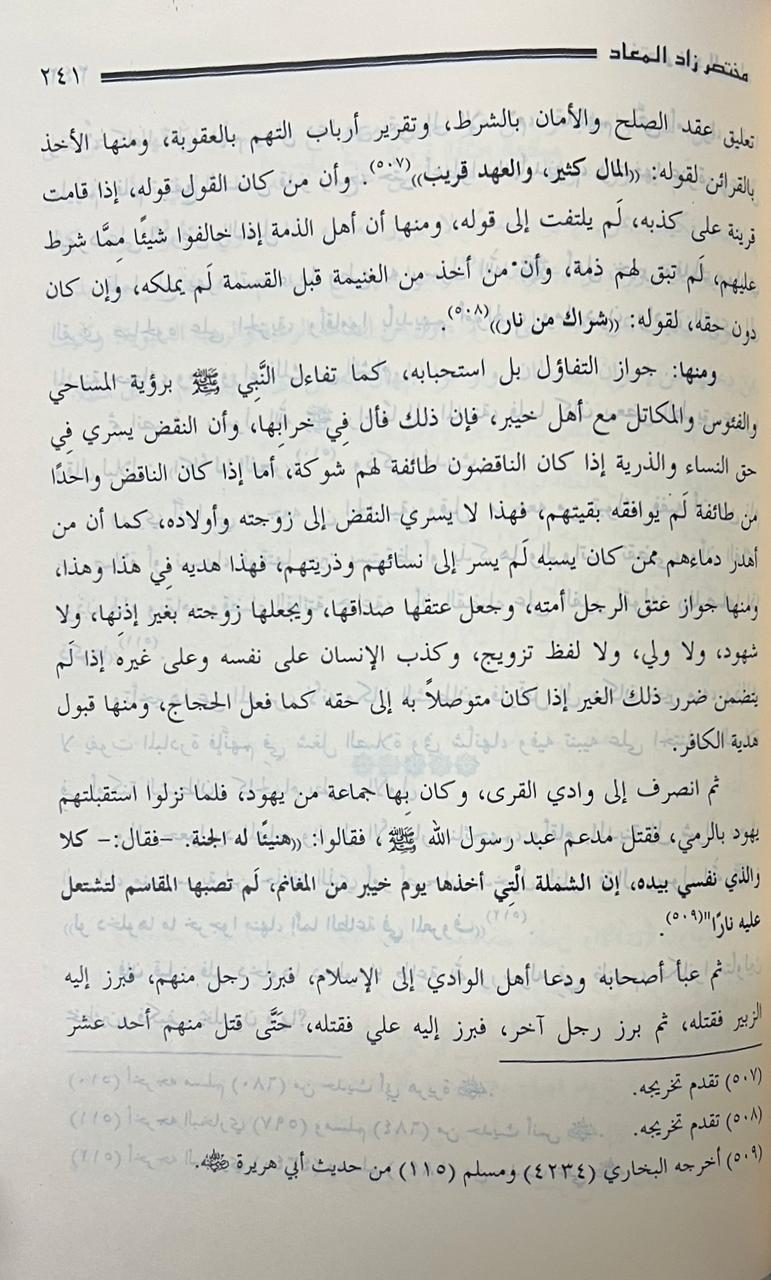 مختصر زاد المعاد ٢٤١
تعليق عقد الصلح والأمان بالشرط، وتقرير أرباب التهم بالعقوبة، ومنها الأخذ
بالقرائن لقوله: ((المال كثير، والعهد قريب))(٥٠٧). وأن من كان القول قوله، إذا قامت
قرينة على كذبه، لَم يلتفت إلى قوله، ومنها أن أهل الذمة إذا خالفوا شيئًا مِمَّا شرط
عليهم، لَم تبق لهم ذمة، وأن من أخذ من الغنيمة قبل القسمة لَم يملكه، وإن كان
دون حقه، لقوله: ((شراك من نار))(٥٠٨).
ومنها: جواز التفاؤل بل استحبابه، كما تفاءل النَّبِي ﷺ برؤية المساحي
والفئوس والمكاتل مع أهل خيبر، فإن ذلك فأل فِي خرابِها، وأن النقض يسري فِي
حق النساء والذرية إذا كان الناقضون طائفة لهم شوكة، أما إذا كان الناقض واحدًا
من طائفة لَم يوافقه بقيتهم، فهذا لا يسري النقض إلى زوجته وأولاده، كما أن من
أهدر دماءهم ممن كان يسبه لَم يسر إلى نسائهم وذريتهم، فهذا هديه فِي هذا وهذا،
ومنها جواز عتق الرجل أمته، وجعل عتقها صداقها، ويجعلها زوجته بغير إذنِها، ولا
شهود، ولا ولي، ولا لفظ تزويج، وكذب الإنسان على نفسه وعلى غيره إذا لَم
يتضمن ضرر ذلك الغير إذا كان متوصلاً به إلى حقه كما فعل الحجاج، ومنها قبول
هدية الكافر.
ثم انصرف إلى وادي القرى، وكان بِها جماعة من يهود، فلما نزلوا استقبلتهم
يهود بالرمي، فقتل مدعم عبد رسول الله ﷺ، فقالوا: ((هنيئًا له الجنة. -فقال:- كلا
والذي نفسي بيده، إن الشملة الَّتِي أخذها يوم خيبر من المغانم، لَم تصبها المقاسم لتشتعل
عليه نارًا"(٥٠٩).
ثم عبأ أصحابه ودعا أهل الوادي إلى الإسلام، فبرز رجل منهم، فبرز إليه
الزبير فقتله، ثم برز رجل آخر، فبرز إليه علي فقتله، حَتَّى قتل منهم أحد عشر
(٥٠٧) تقدم تخريجه.
(٥٠٨) تقدم تخريجه.
(٥٠٩) أخرجه البخاري (٤٢٣٤) ومسلم (١١٥) من حديث أبي هريرة رضي الله عنه.